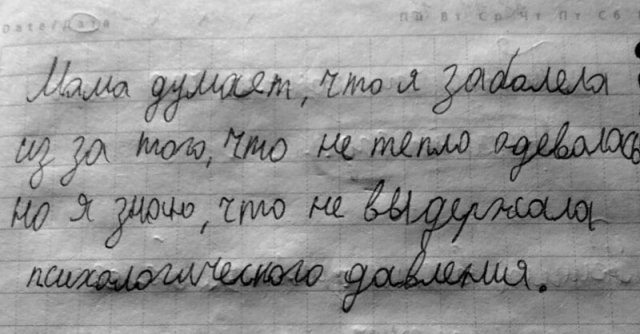 Date/Дата / / Пн Вт Ср Чт Пт Сб
Мама думает, что я заболела
из за того, что не тепло одевалась
но я знаю, что не выдержала
психологического давления.